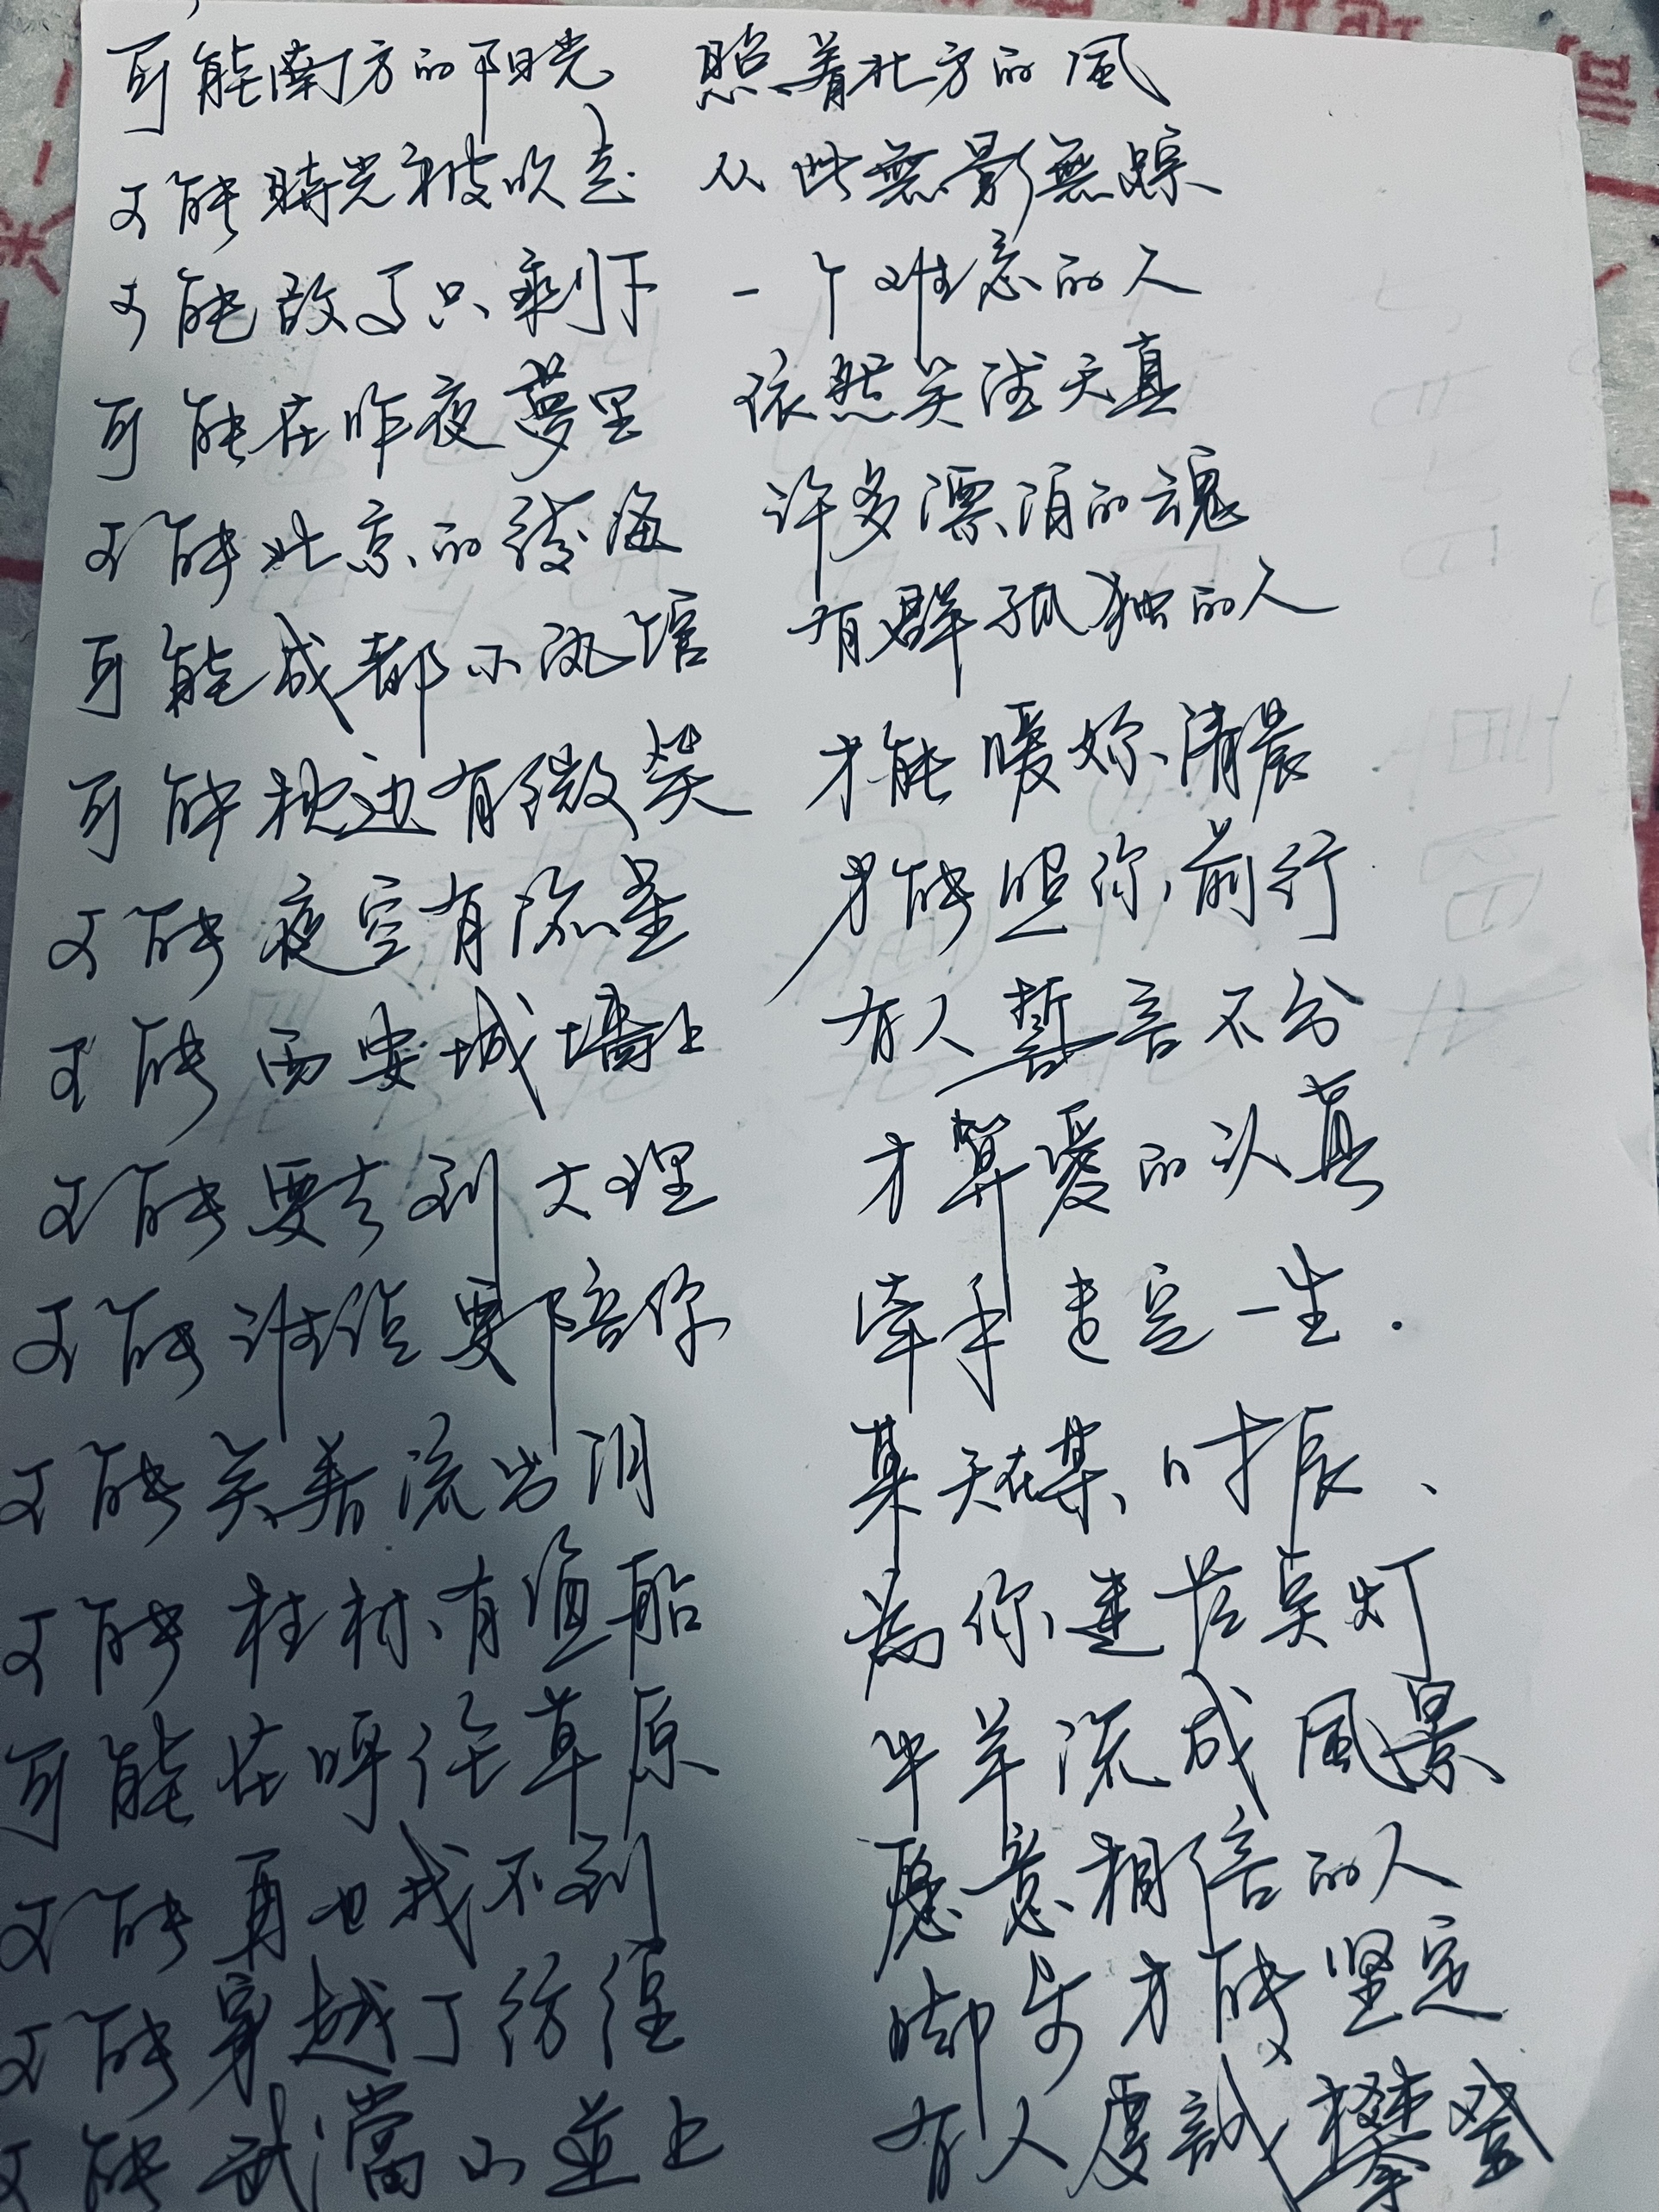 可能南方的阳光 照着北方的風
可能時光被吹走 从此無影無踪
可能故事只剩下 一个难忘的人
可能在昨夜夢里 依然笑得天真
可能北京的後海 许多漂泊的魂
可能成都小酒馆 有群孤独的人
可能枕边有微笑 才能暖妳清晨
可能夜空有流星 才能照你前行
可能西安城墙上 有人誓言不分
可能要去到大理 才算爱的认真
可能谁说要陪你 牵手走完一生
可能笑着流出泪 某天在某时辰
可能桂林有渔船 為你迷茫点灯
可能在呼伦草原 牛羊流成風景
可能再也找不到 愿意相信的人
可能穿越了彷徨 脚步才能坚定
可能武當山並上 有人虔誠攀登